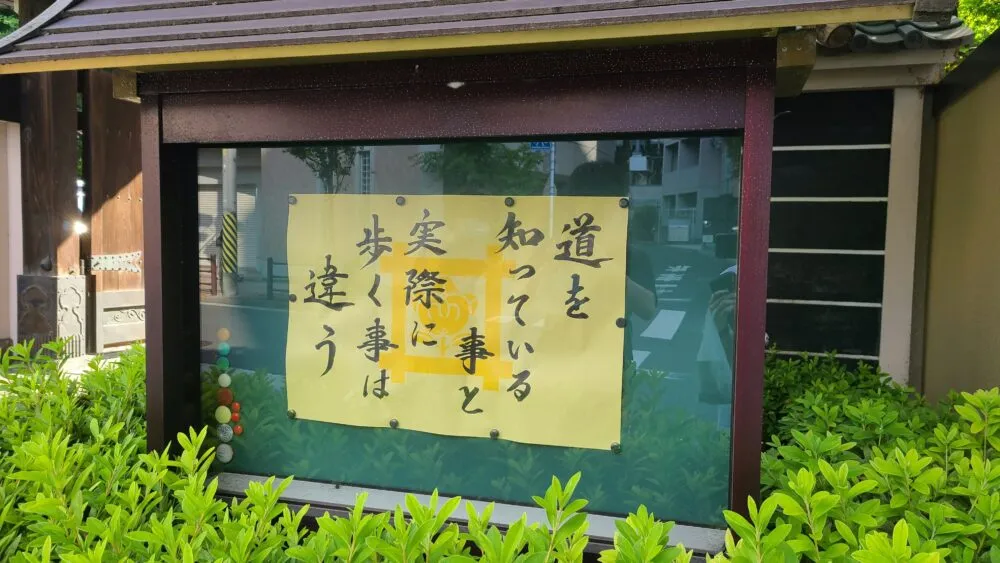 道を
知っている
事と
実際に
歩く事は
違う